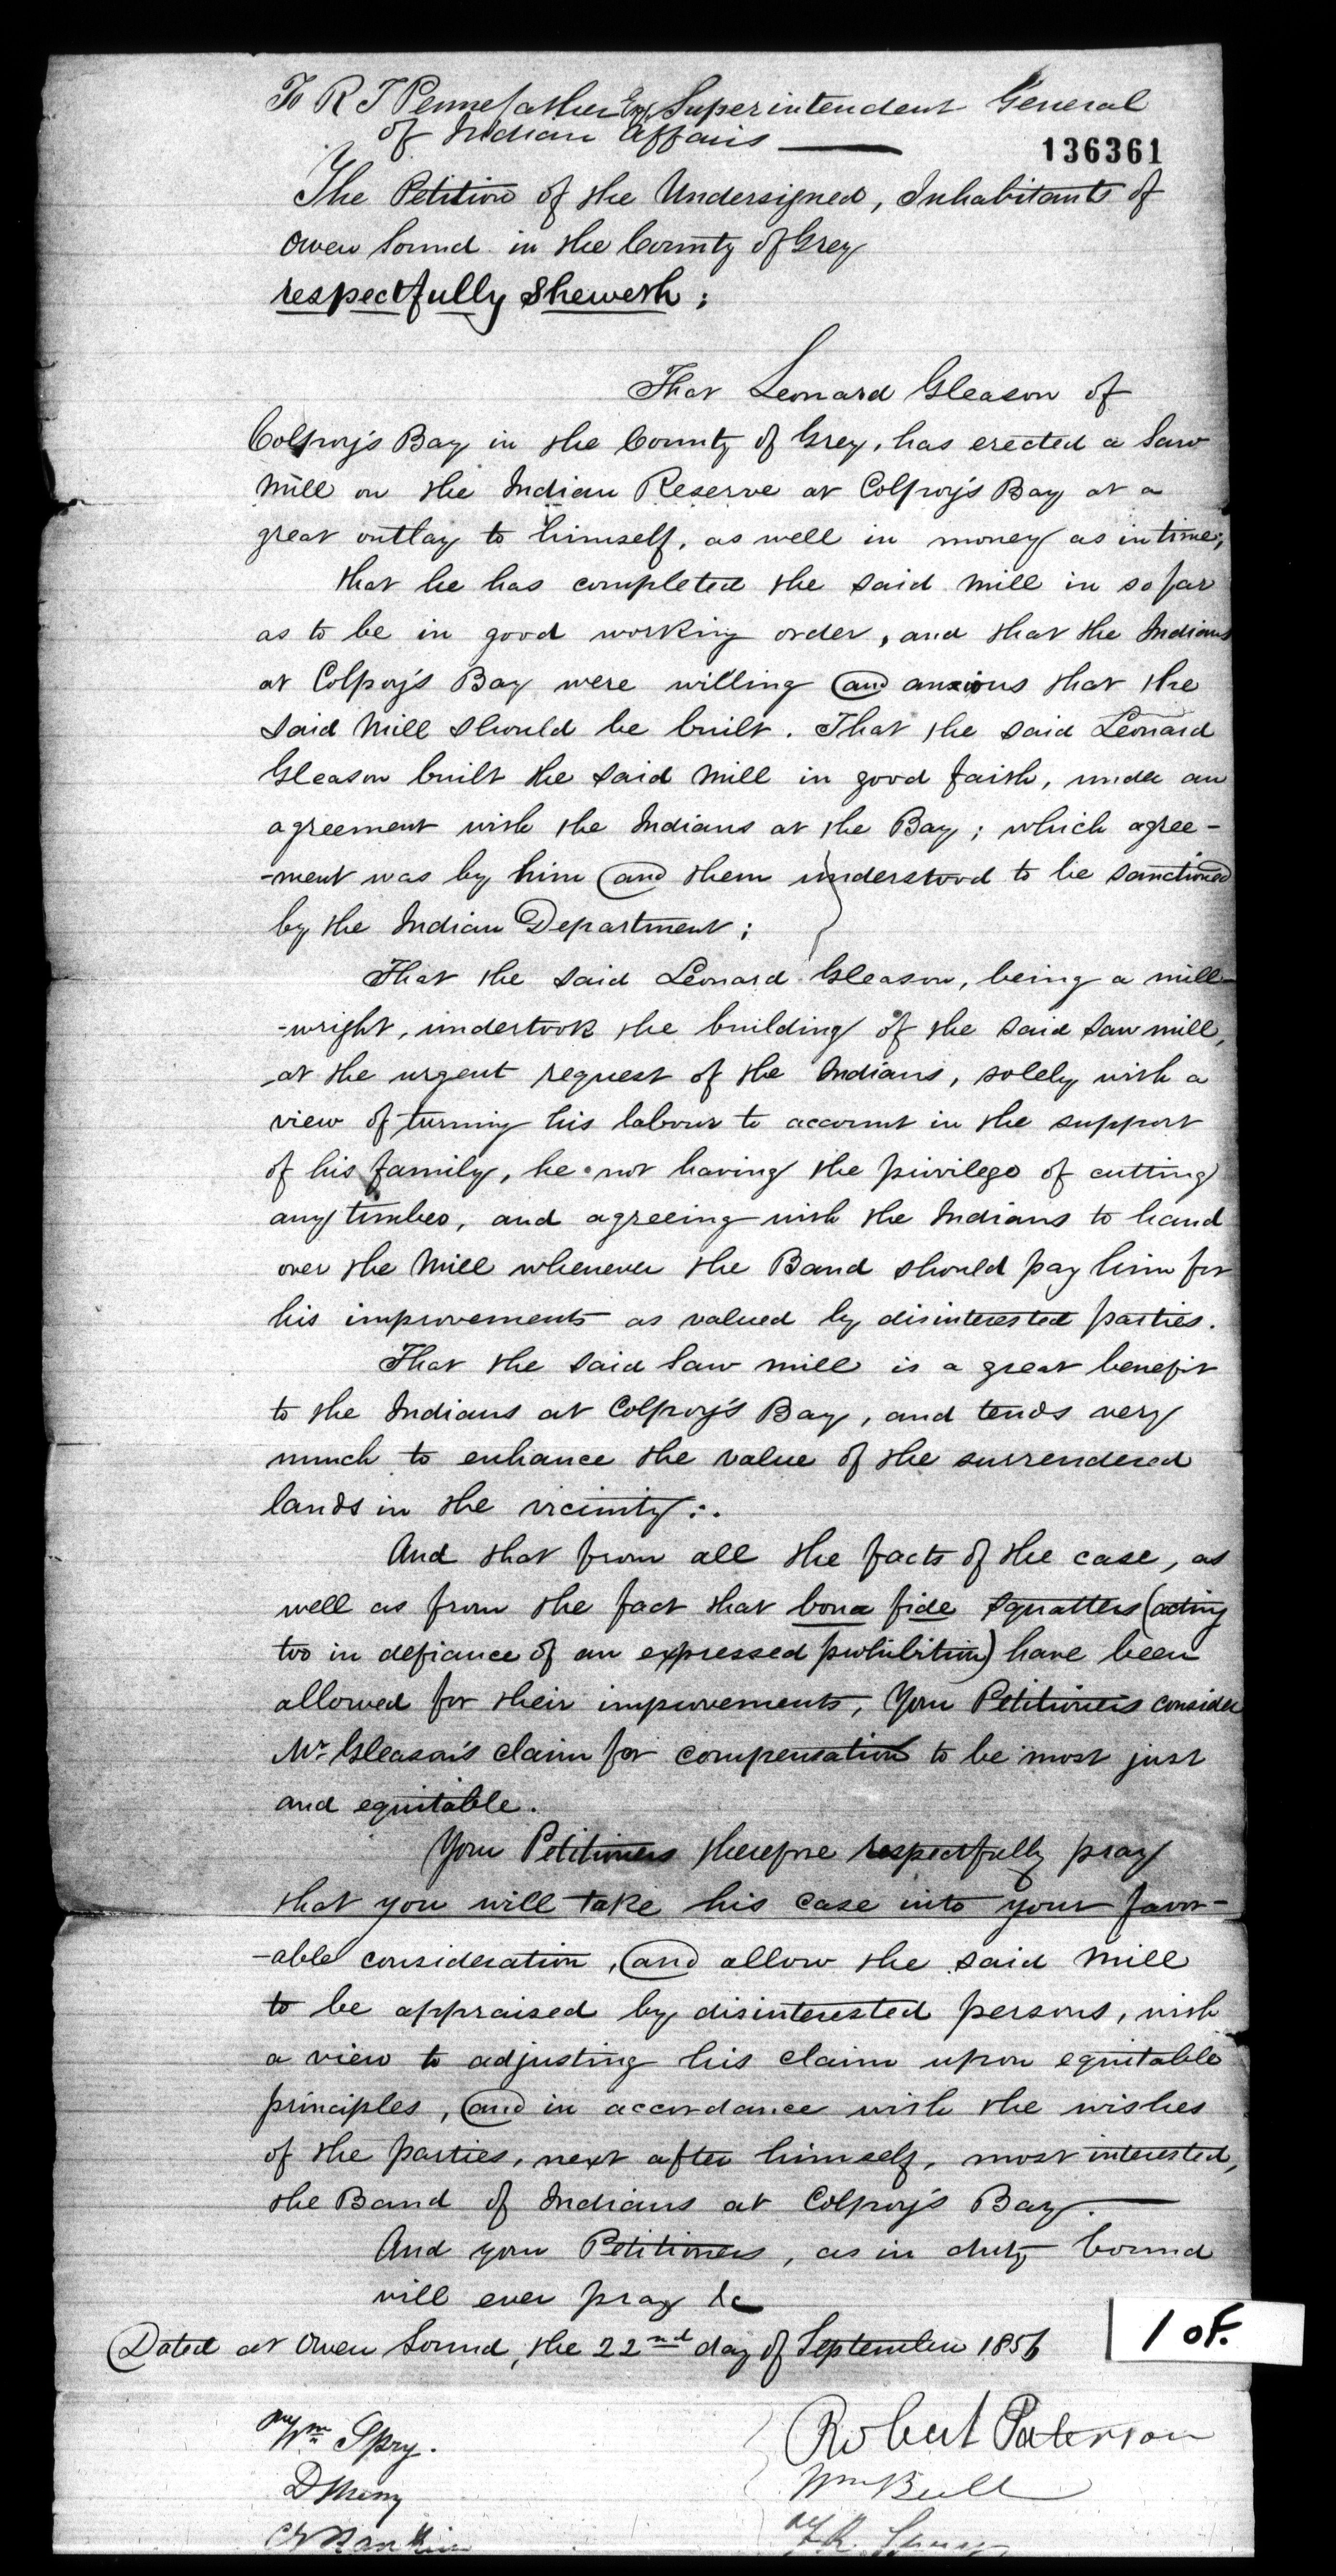 To R T Pennefather Esq, Superintendent General
of Indian Affairs
136361
The Petition of the Undersigned, Inhabitants of
Owen Sound in the County of Grey
respectfully Sheweth;
That Leonard Gleason of
Colpoy's Bay in the County of Grey, has erected a Saw
Mill on the Indian Reserve at Colpoy's Bay at a
great outlay to himself, as well in money as in time;
that he has completed the said Mill in so far
as to be in good working order, and that the Indians
at Colpoy's Bay were willing and anxious that the
said Mill should be built. That the said Leonard
Gleason built the said Mill in good faith, under an
agreement with the Indians at the Bay; which agree-
-ment was by him and them understood to be sanctioned
by the Indian Department;
That the said Leonard Gleason, being a mill-
-wright, undertook the building of the said Saw mill,
at the urgent request of the Indians, solely with a
view of turning his labour to account in the support
of his family, he not having the privilege of cutting
any timber, and agreeing with the Indians to hand
over the Mill whenever the Band should pay him for
his improvements as valued by disinterested parties.
That the said Saw mill is a great benefit
to the Indians at Colpoy's Bay, and tends very
much to enhance the value of the surrendered
lands in the vicinity:.
And that from all the facts of the case, as
well as from the fact that bona fide squatters (acting
too in defiance of an expressed prohibition) have been
allowed for their improvements, Your Petitioners consider
Mr Gleason's claim for compensation to be most just
and equitable.
Your Petitioners therefore respectfully pray
that you will take his case into your favor-
-able consideration, and allow the said Mill
to be appraised by disinterested persons, with
a view to adjusting his claim upon equitable
principles, and in accordance with the wishes
of the parties, next after himself, most interested,
the Band of Indians at Colpoy's Bay.
And your Petitioners, as in duty bound
will ever pray &c
Dated at Owen Sound, the 22nd day of September 1856
1 of.
Wm Spry.
Robert Paterson
Wm Bull